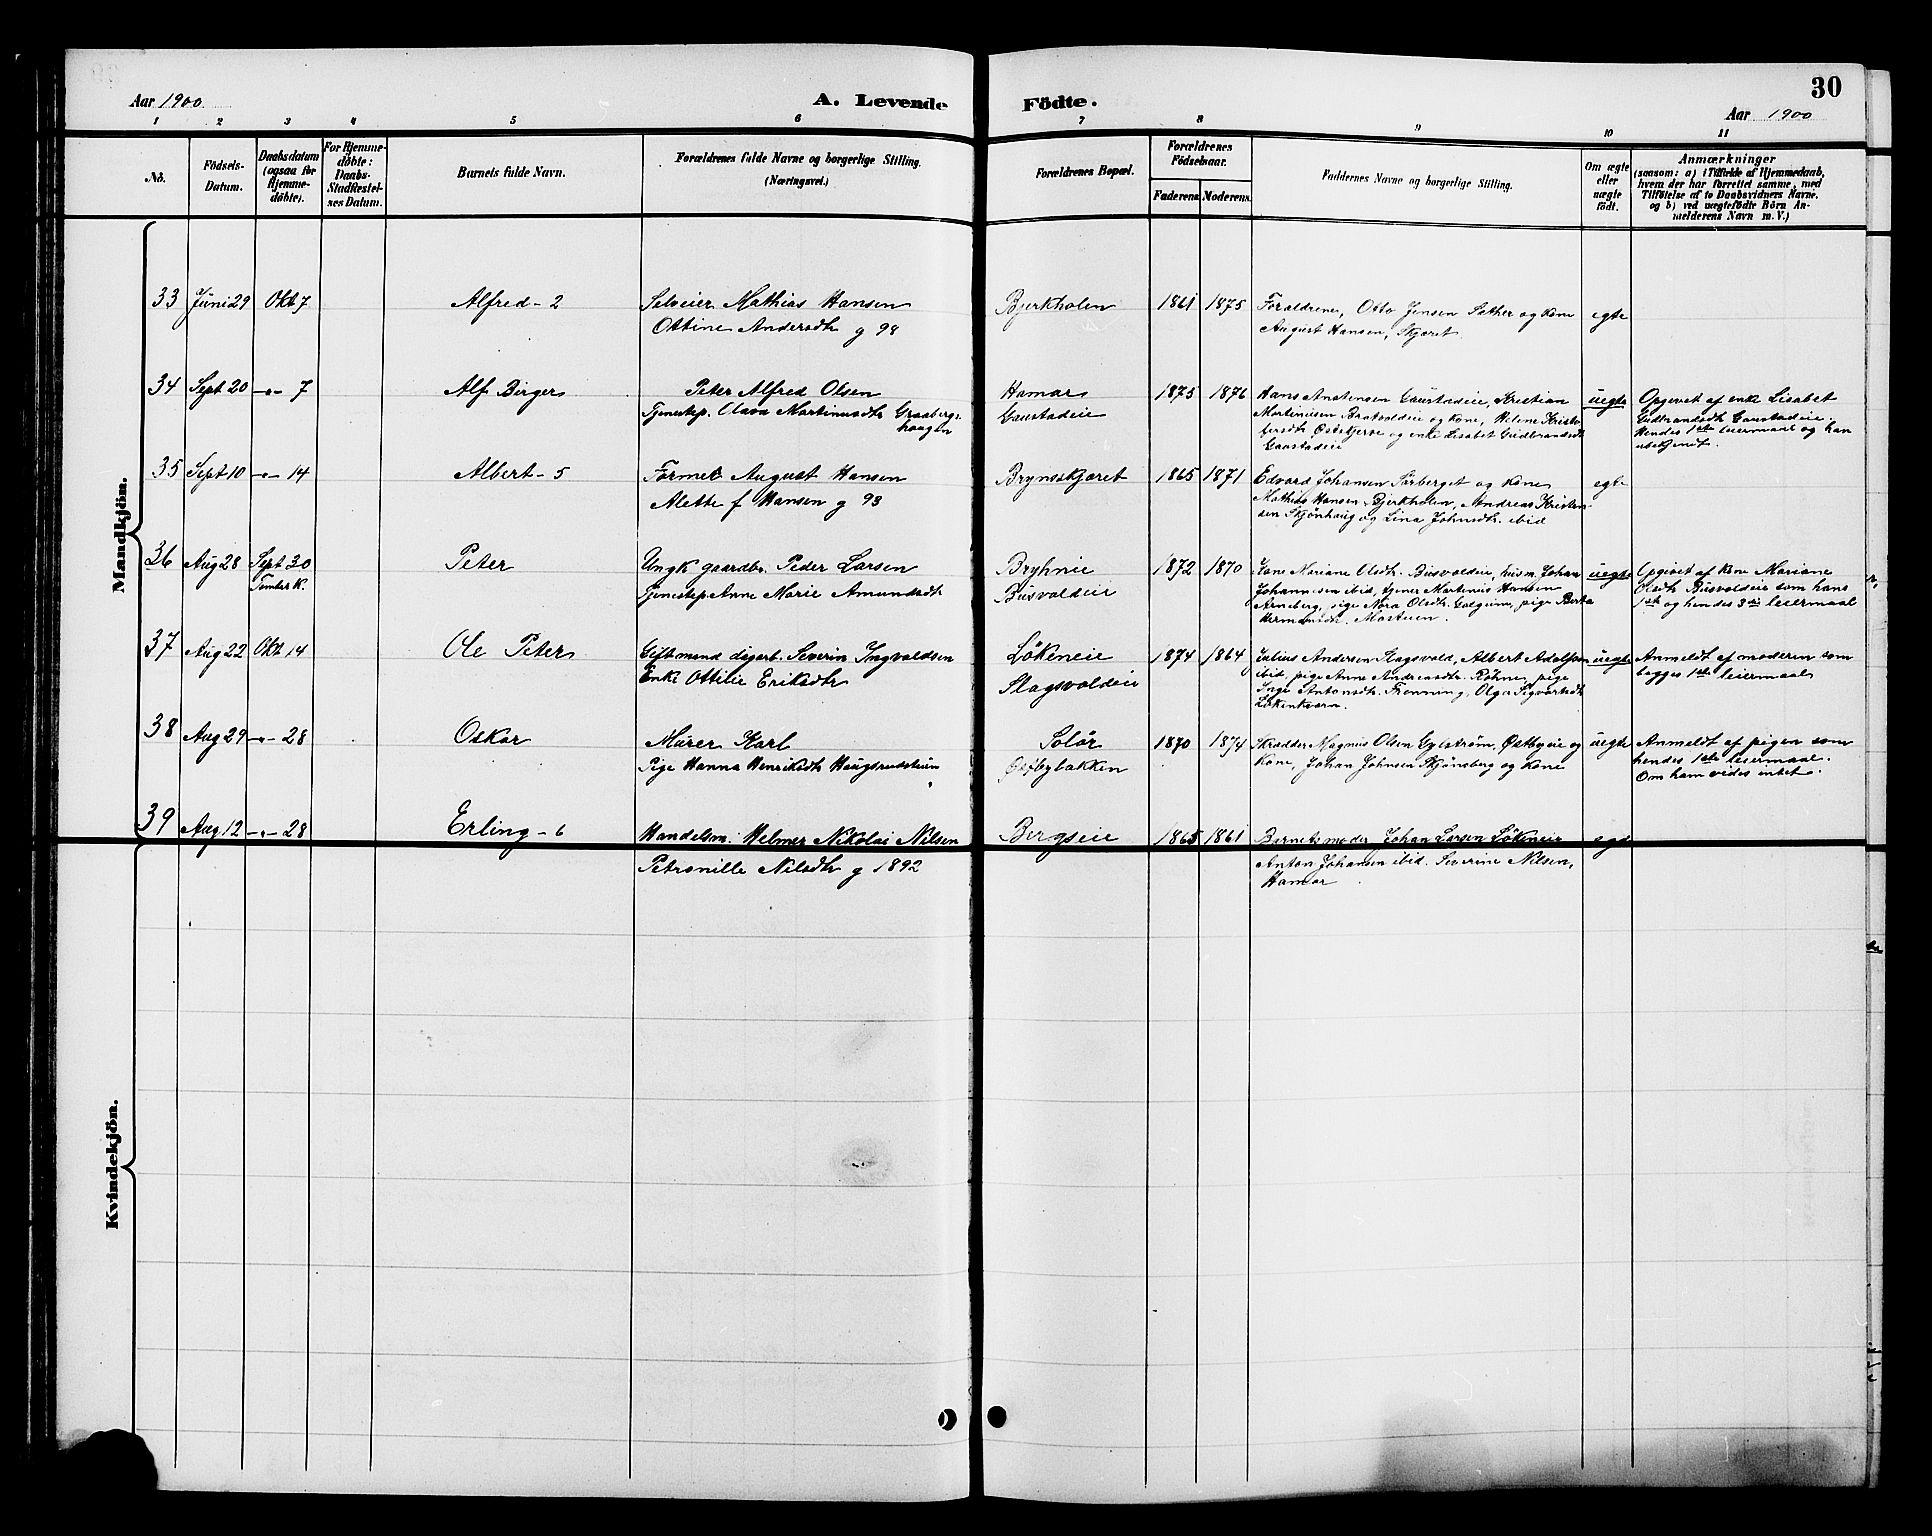 Aar 1900
A. Levende
Födte.
30
Aar 1900
1 2 3 4 5 6 7 8 9 10 11
No.
Födsels-
Datum.
Daabsdatum
(ogsaa for
Hjemme-
döbte).
For Hjemme-
döbte:
Daabs-
Stadfæstel-
ses Datum.
Barnets fulde Navn.
Forældrenes fulde Navne og borgerlige Stilling.
(Næringsvei.)
Forældrenes Bopæl.
Forældrenes
Födselsaar.
Faderens. Moderens.
Faddernes Navne og borgerlige Stilling.
Om ægte
eller
uægte
födt.
Anmærkninger
(saasom: a) i Tilfælde af Hjemmedaab,
hvem der har forrettet samme, med
Tilföielse af to Daabsvidners Navne.
og b) ved uægtefödte Börn An-
melderens Navn m. V.)
Mandkjön.
33 Juni 29 Okt 7 Alfred - 2 Selveier Mathias Hansen Bjerkholen 1861 1875 Forældrene, Otto Jensen Sæther og kone
Ottine Andersdtr g 98 August Hansen, Skjæret egte
34 Sept 20 -"- 7 Alf Birger Peter Alfred Olsen Hamar 1875 1876 Hans Anatensen Gaustadeie, Kristian uegte Opgivet af enke Lisabet
Tjenestep. Olava Martinusdtr Graaberg- Gaustadeie Martinusen Bratvoldeie og kone, Helene Kristo- Gudbrandsdtr Gaustadeie.
haugen fersdtr Østekjerve og enke Lisabet Gudbrandsdtr Hendes 1ste leiermaal og han
Gaustadeie ubekjendt.
35 Sept 10 -"- 14 Albert - 5 Former August Hansen Brynsskjæret 1865 1871 Edvard Johansen Sørberget og kone egte
Alette f Hansen g 93 Mathias Hansen Bjerkholen, Andreas Kristen-
sen Skjönhaug og Lina Johnsdtr. ibid
36 Aug 28 Sept 30 Peter Ungk gaardbr. Peder Larsen Bryhnie 1872 1870 Kone Mariane Olsdtr. Busvoldeie, husm. Johan uegte Opgivet af kone Mariane
Tomter K. Tjenestep. Anne Marie Amundsdtr Busvoldeie Johannesen ibid, tjener Martinius Hansen Olsdtr Busvoldeie som hans
Arneberg, pige Nora Olsdtr. Golgium, pige Berta 1ste og hendes 3die leiermaal
Hermansdtr. Mostuen.
37 Aug 22 Okt 14 Ole Peter Giftmand dagarb. Severin Ingvaldsen Lökeneie 1874 1864 Julius Andersen Slagsvold, Albert Adolfsen uegte Anmeldt af moderen som
Enke Ottilie Eriksdtr Slagsvoldeie ibid, pige Anne Andreasdtr. Röhne, pige begges 1ste leiermaal
Inga Antonsdtr. Frenning, Olga Sigvartsdtr
Lökenkværn.
38 Aug 29 -"- 28 Oskar Murer Karl Solör 1870 1874 Skrædder Magnus Olsen Gylstrøm, Østbyeie og uegte Anmeldt af pigen som
Pige Hanna Henriksdtr Haugsrudstuen Østbybakken Kone, Johan Johnsen Skjönsberg og kone hendes 1ste leiermaal.
Om ham vides intet.
39 Aug 12 -"- 28 Erling - 6 Handelsm. Helmer Nikolai Nilsen Bergseie 1865 1861 Barnets moder, Johan Larsen Lökeneie egte
Petronille Nilsdtr g 1892 Anton Johansen ibid. Severine Nilsen,
Hamar
Kvindekjön.